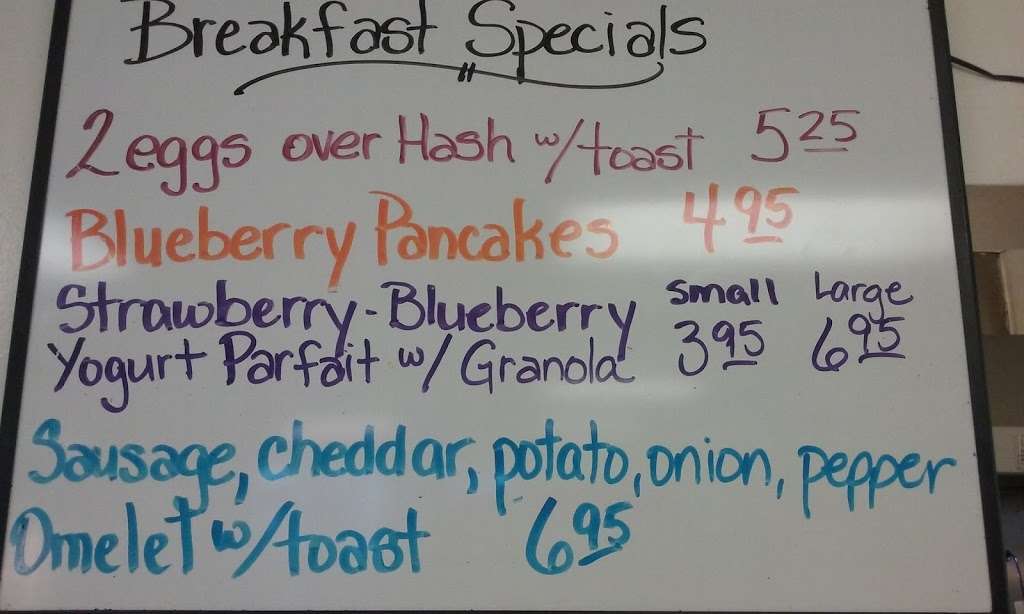 Breakfast Specials
2 eggs over Hash w/toast 5 25
Blueberry Pancakes 4 95
Strawberry-Blueberry small Large
Yogurt Parfait w/ Granola 3 95 6 95
Sausage, cheddar, potato, onion, pepper
Omelet w/toast 6 95